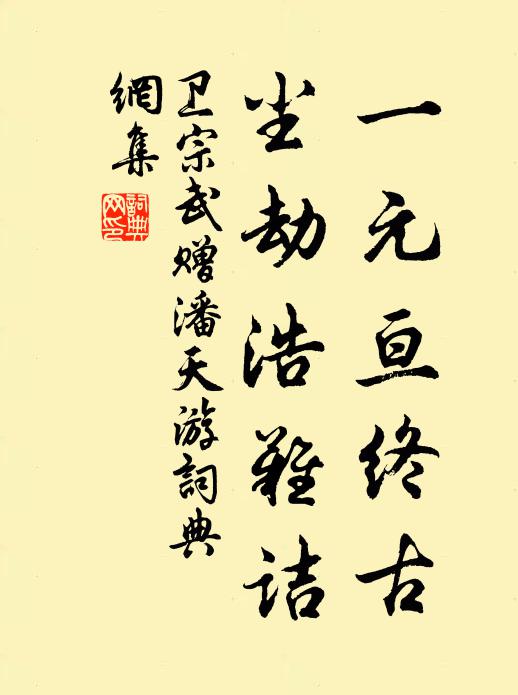 一元亘终古
尘劫浩难诘
卫宗武赠潘天游詞典
網集
詞典网印